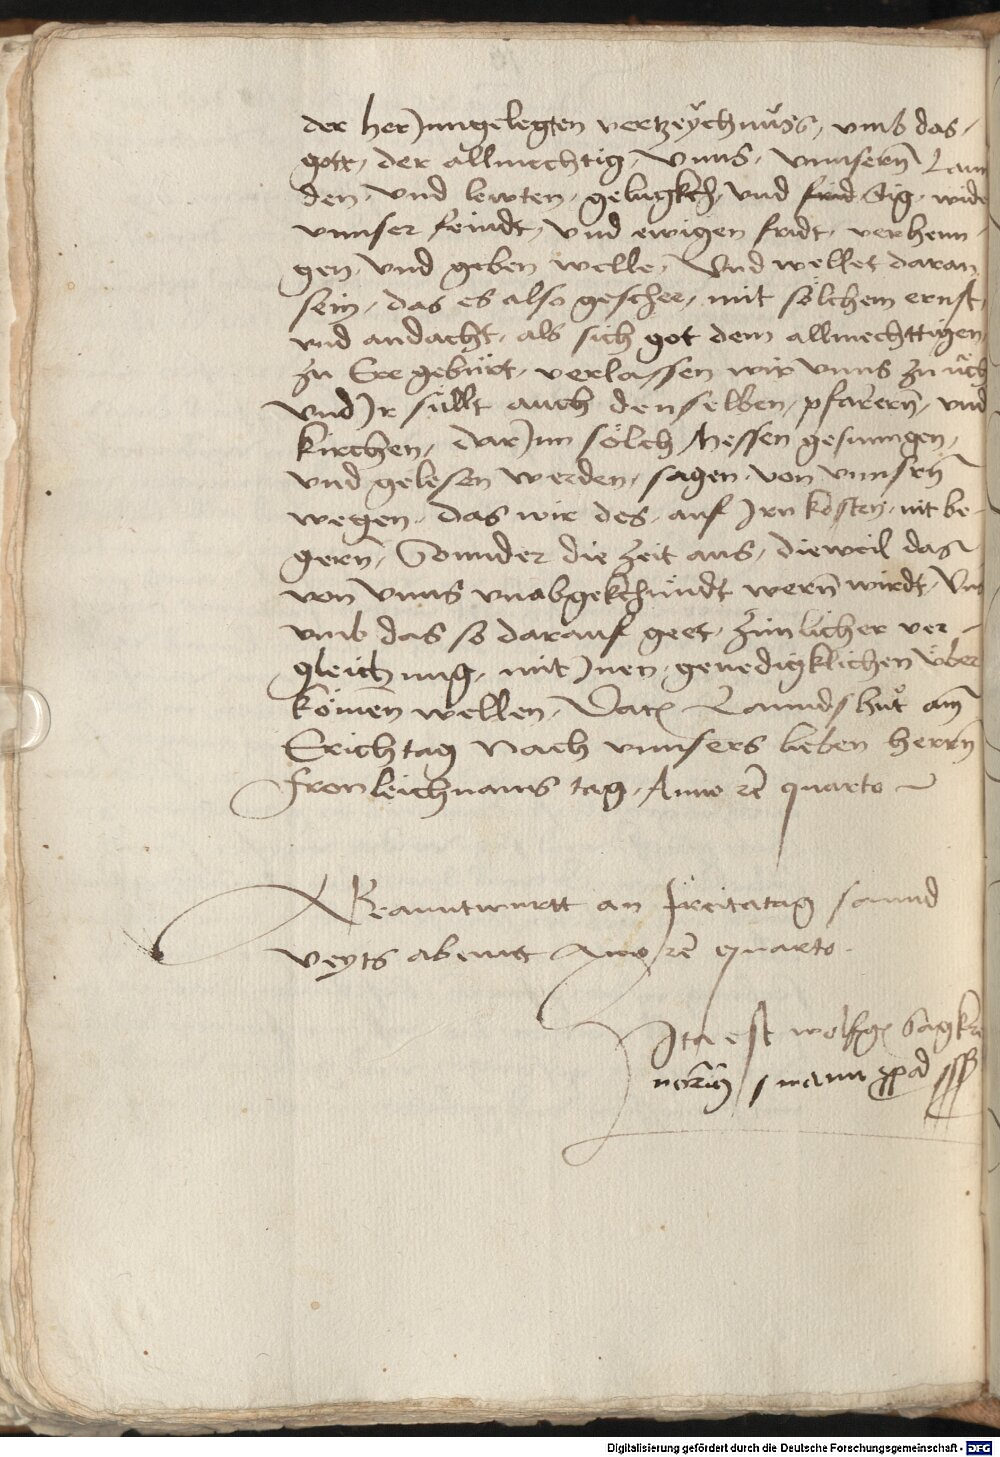 der her Jnngelegten vertzeychnüss, vmb das,
gott, der allmechtig, vnns, vnnsern Lan
den, vnd lewten, gelugkch, vnd frid Sig, wide
vnnser feindt, vnd ewigen fridt, verhenn-
gen, vnd geben welle, Vnd wellet daran
sein, das es also gescher, mit sölchem ernst,
vnd andacht, als sich got dem allmechttigen,
zu Ere gebürt, verlassen wir vnns zu üch
Vnd Jr süllt auch denselben, pfarern, vnd
kirchen, dar Jnn sölch Messen gesungen,
vnd gelesen werden, sagen, von vnnsern
wegen, das wir des, auf Jrn kosten, nit be-
gern, Sonnder die zeit aus, dieweil das
von vnns vnabgekchündt wern wirdt, Vn
vmb das so darauf geet, zimlicher ver-
gleichung, mit Jnen, genedigklichen über
kömen wellen, Dat Lanndshut am
Erichtag Nach vnnsers lieben herrn
fronleichnams tag, Anno etc quarto

Beanntwurtt an freitatag sannd
veyts abennt Anno etc quarto.

Ita est wolfg Sagk
manu